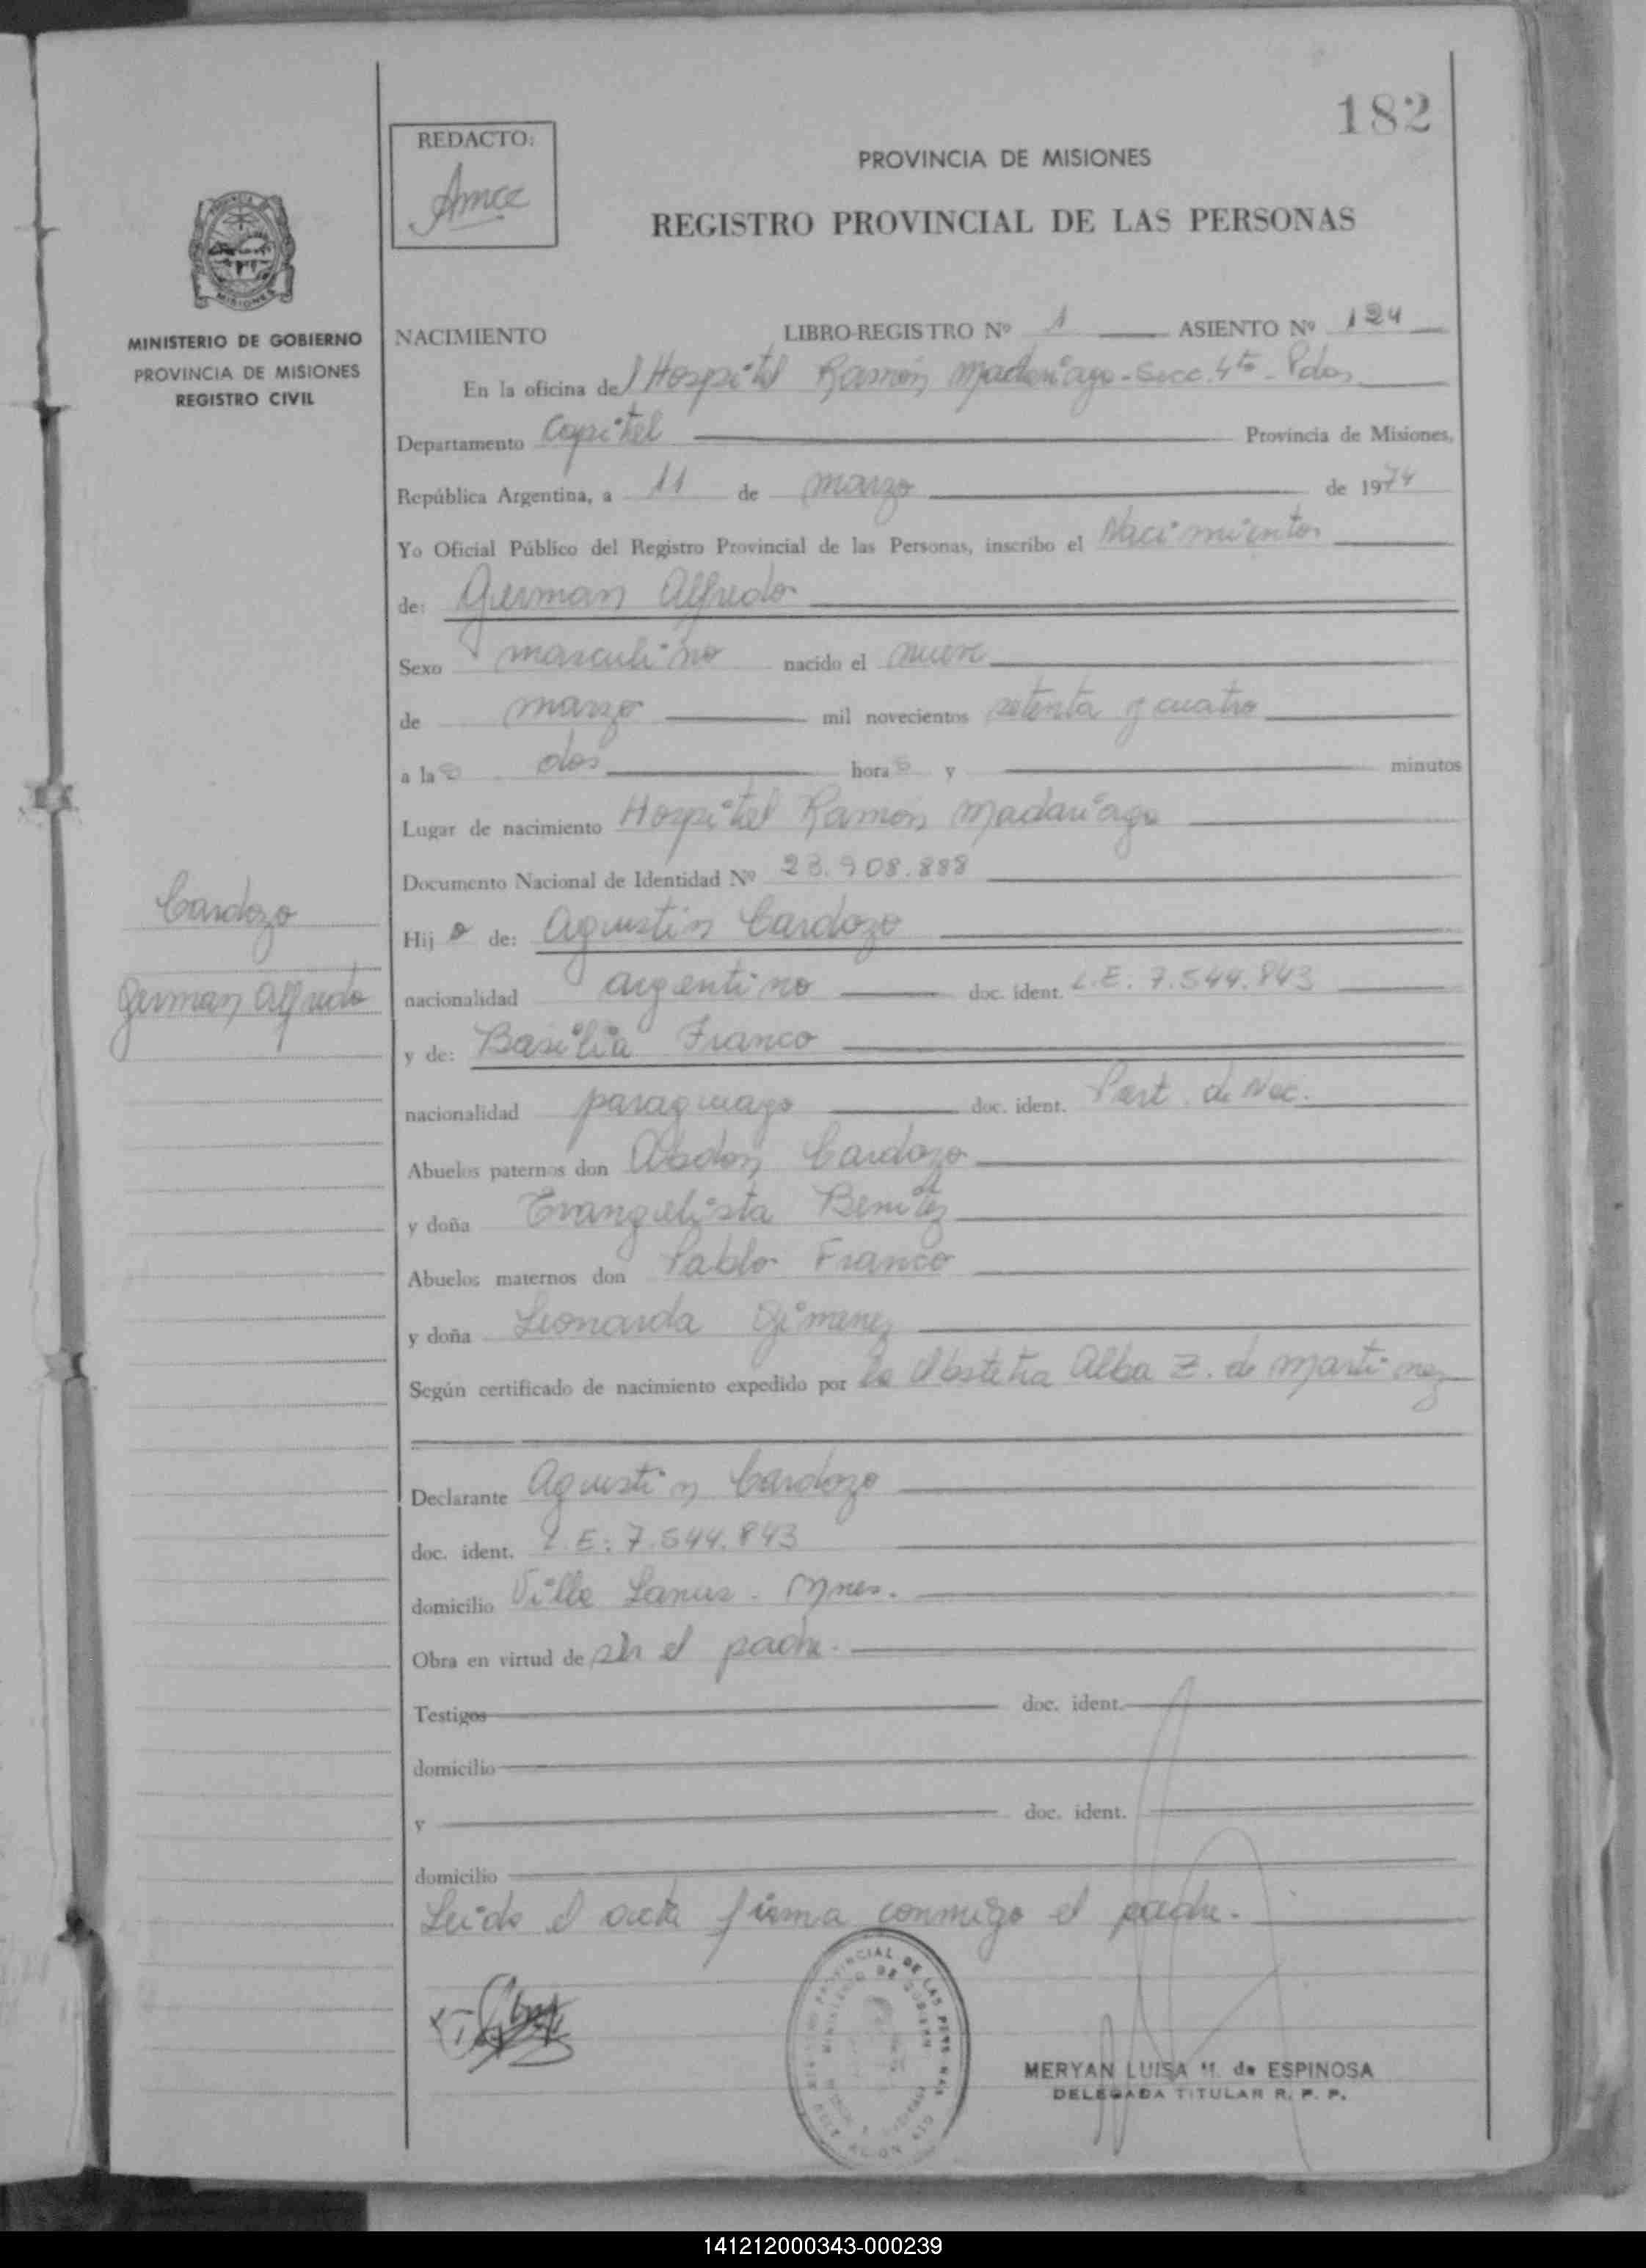 182
REDACTO:
PROVINCIA DE MISIONES
REGISTRO PROVINCIAL DE LAS PERSONAS
MISIONES
MINISTERIO DE GOBIERNO
PROVINCIA DE MISIONES
REGISTRO CIVIL
NACIMIENTO LIBRO-REGISTRO Nº 1 ASIENTO Nº 124
En la oficina del Hospital Ramón Madariaga - Secc. 4ta - Pdas
Departamento Capital Provincia de Misiones,
República Argentina, a 11 de marzo de 1974
Yo Oficial Público del Registro Provincial de las Personas, inscribo el Nacimiento
de: German Alfredo
Sexo masculino nacido el nueve
de marzo mil novecientos setenta y cuatro
a las dos horas y minutos
Lugar de nacimiento Hospital Ramón Madariaga
Documento Nacional de Identidad Nº 23.908.888
Cardozo
German Alfredo
Hijo de: Agustin Cardozo
nacionalidad argentino doc. ident. L.E. 7.544.843
y de: Basilia Franco
nacionalidad paraguaya doc. ident. Part. de Nac.
Abuelos paternos don Abdon Cardozo
y doña Evangelista Benitez
Abuelos maternos don Pablo Franco
y doña Leonarda Gimenez
Según certificado de nacimiento expedido por la Obstetra Alba Z. de Martinez
Declarante Agustin Cardozo
doc. ident. L.E: 7.544.843
domicilio Villa Lanus - Mnes.
Obra en virtud de ser el padre.
Testigos doc. ident.
domicilio
y doc. ident.
domicilio
Leida el acta firma conmigo el padre.
MERYAN LUISA M. de ESPINOSA
DELEGADA TITULAR R. P. P.
141212000343-000239